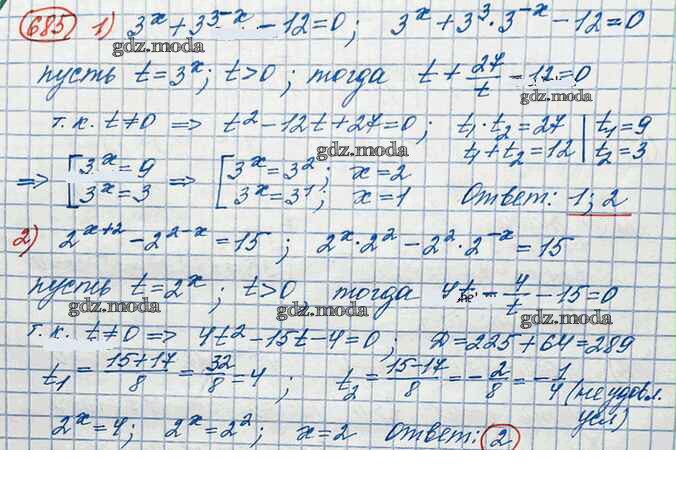 685 1) 3^x + 3^{3-x} - 12 = 0; 3^x + 3^3 · 3^{-x} - 12 = 0
gdz.moda
пусть t = 3^x; t > 0; тогда t + 27/t - 12 = 0
gdz.moda
т.к. t ≠ 0 ⇒ t^2 - 12t + 27 = 0; t_1 · t_2 = 27 | t_1 = 9
t_1 + t_2 = 12 | t_2 = 3
⇒ [ 3^x = 9 ⇒ [ 3^x = 3^2; x = 2
3^x = 3 3^x = 3^1; x = 1 Ответ: 1; 2
2) 2^{x+2} - 2^{2-x} = 15; 2^x · 2^2 - 2^2 · 2^{-x} = 15
gdz.moda
пусть t = 2^x; t > 0, тогда 4t - 4/t - 15 = 0
gdz.moda gdz.moda
т.к. t ≠ 0 ⇒ 4t^2 - 15t - 4 = 0; D = 225 + 64 = 289
t_1 = (15+17)/8 = 32/8 = 4; t_2 = (15-17)/8 = -2/8 = -1/4 (не удовл.
усл)
2^x = 4; 2^x = 2^2; x = 2 Ответ: 2